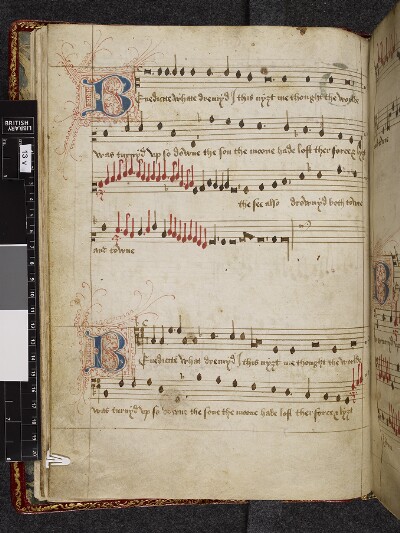 Benedicite whate dremyd I this nyȝt me thought the worlde
was turnyd up so downe the son the moone hade lost ther force & lyȝt
the see also drownyd both towre
and towne
Benedicite What dremyd I this nyȝt me thought the worlde
was turnyd up so downe the sone the moone hade lost ther force & lyȝt
BRITISH LIBRARY
13 v